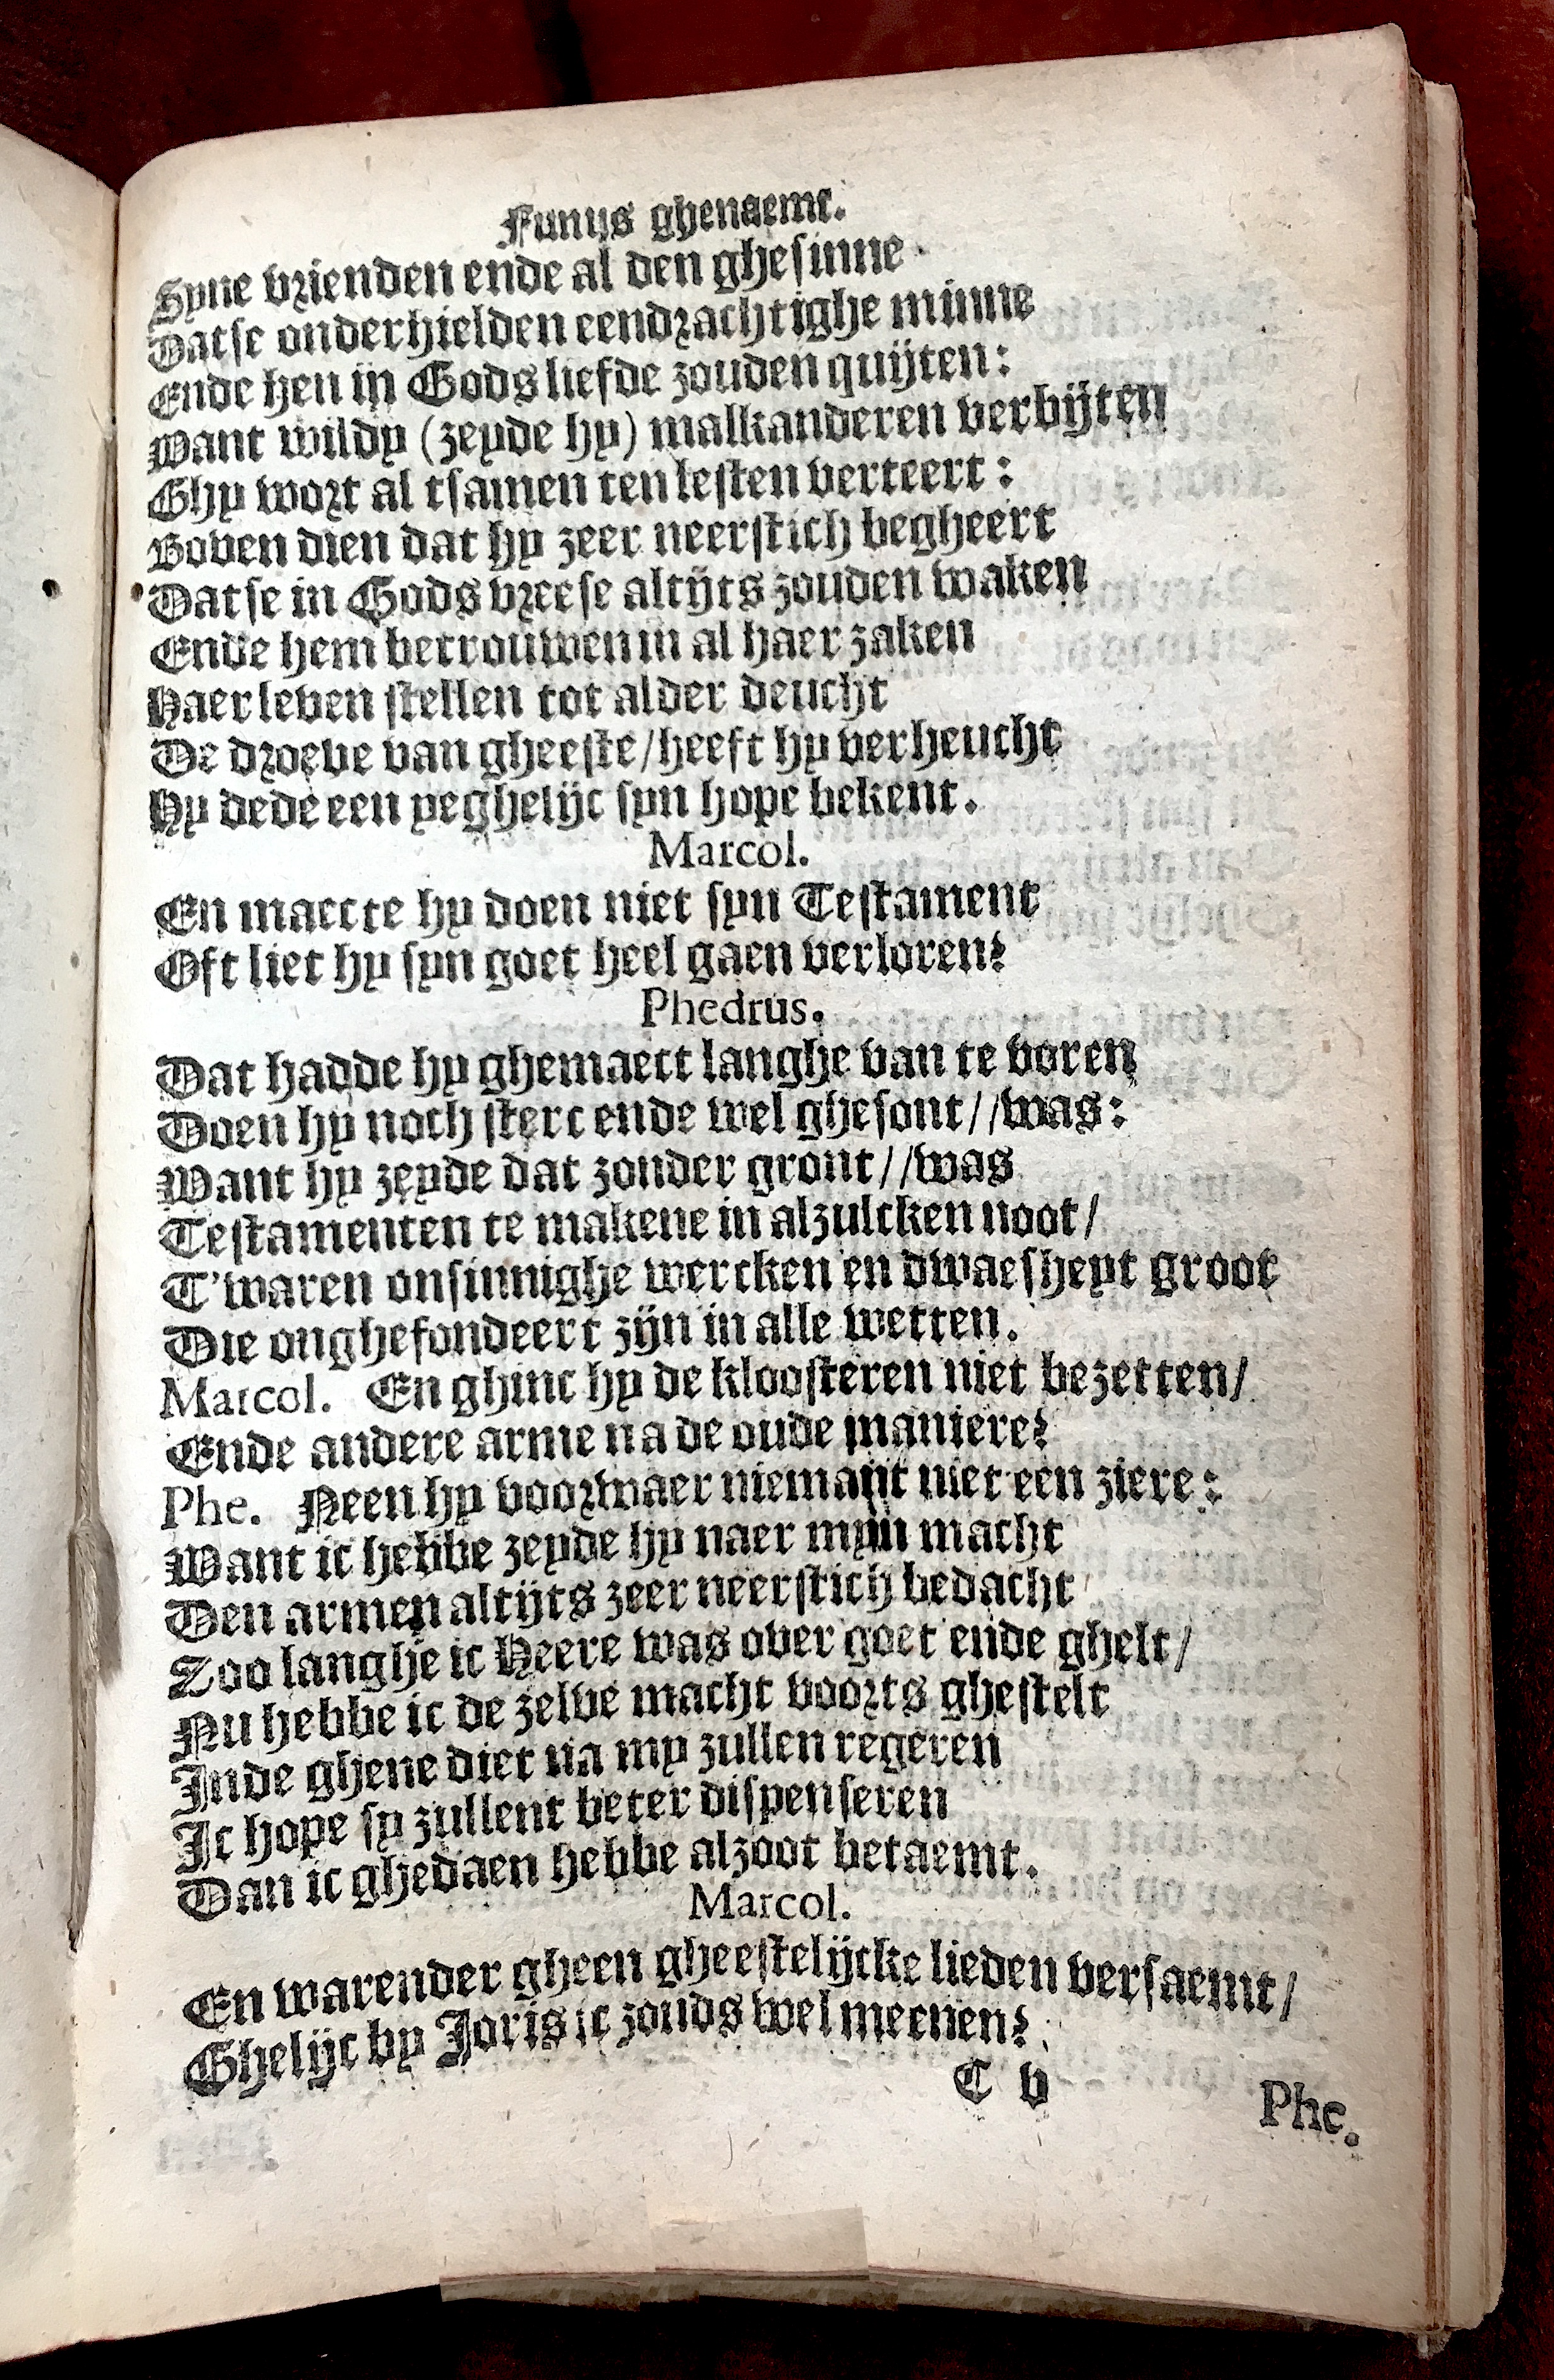 Funus ghenaemt.
Syne vrienden ende al den ghesinne
Datse onderhielden eendrachtighe minne
Ende hen in Gods liefde zouden quijten:
Want wildy (zeyde hy) malkanderen verbijten
Ghy wort al tsamen ten lesten verteert:
Boven dien dat hy zeer neerstich begheert
Datse in Gods vreese altijts zouden waken
Ende hem betrouwen in al haer zaken
Haer leven stellen tot alder deucht
De droeve van gheeste/heeft hy verheucht
Hy dede een yeghelijc syn hope bekent.
Marcol.
En maecte hy doen niet syn Testament
Oft liet hy syn goet heel gaen verloren?
Phedrus.
Dat hadde hy ghemaect langhe van te voren
Doen hy noch sterc ende wel ghesont//was:
Want hy zeyde dat zonder gront//was
Testamenten te makene in alzulcken noot/
T'waren onsinnighe wercken en dwaesheyt groot
Die onghefondeert zijn in alle wetten.
Marcol. En ghinc hy de kloosteren niet bezetten/
Ende andere arme na de oude maniere?
Phe. Neen hy voorwaer niemant niet een ziere:
Want ic hebbe zeyde hy naer myn macht
Den armen altijts zeer neerstich bedacht
Zoo langhe ic Heere was over goet ende ghelt/
Nu hebbe ic de zelve macht voorts ghestelt
Inde ghene diet na my zullen regeren
Ic hope sy zullent beter dispenseren
Dan ic ghedaen hebbe alzoot betaemt.
Marcol.
En warender gheen gheestelijcke lieden versaemt/
Ghelijc by Joris ic zouds wel meenen?
C v
Phe.